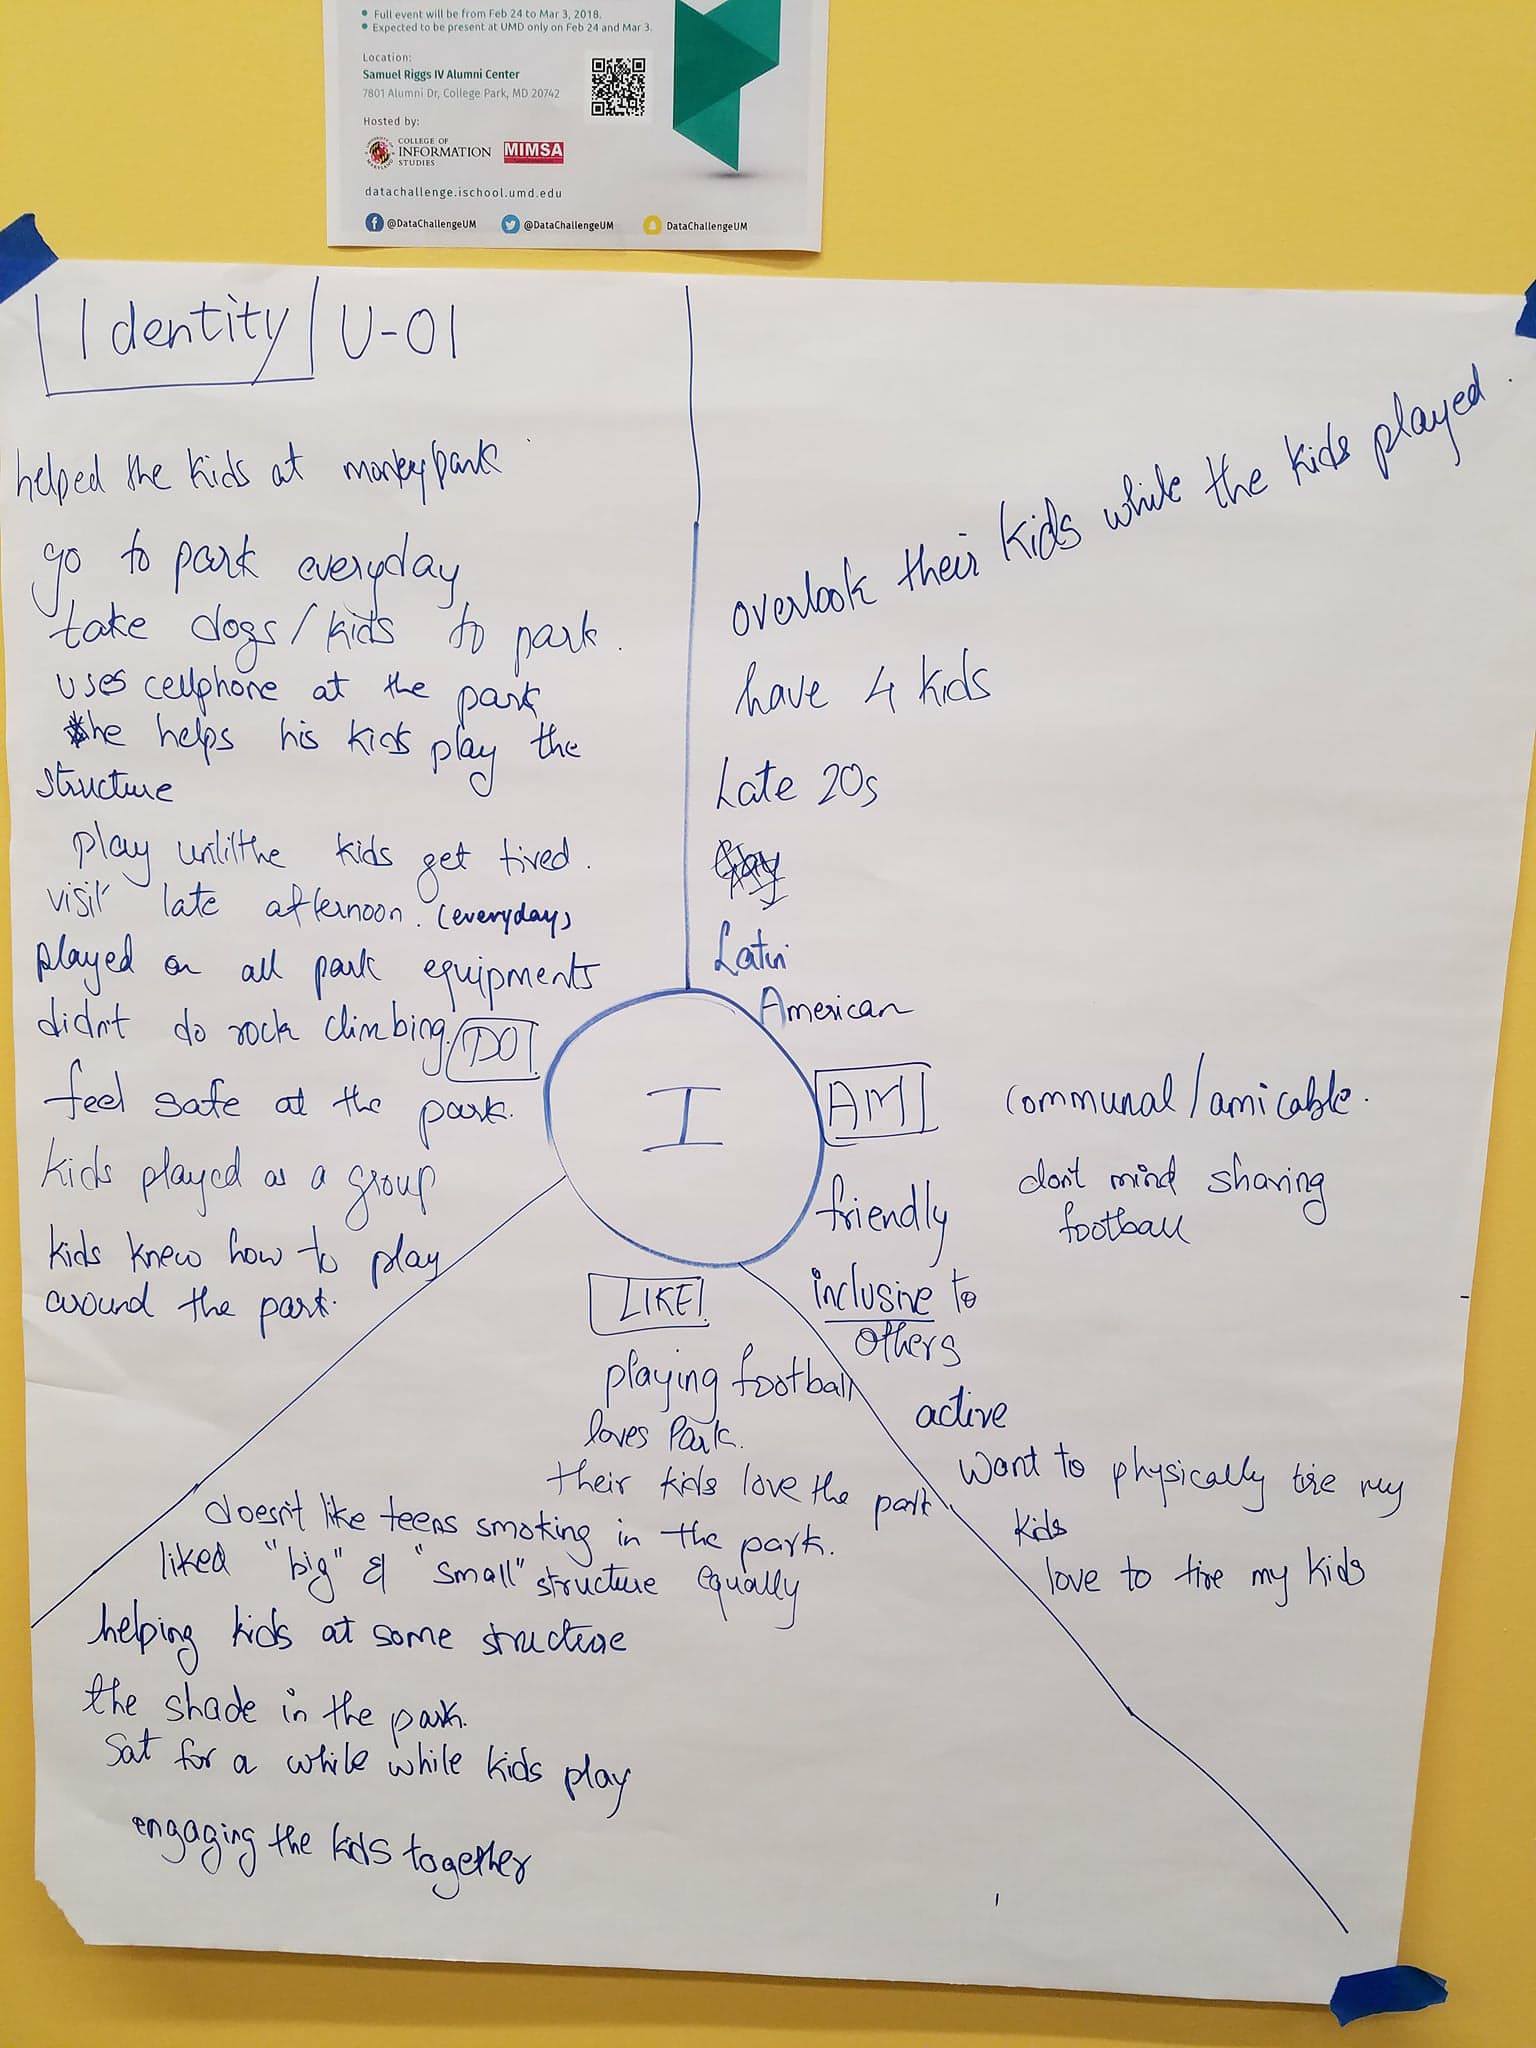 Full event will be from Feb 24 to Mar 3, 2018.
Expected to be present at UMD only on Feb 24 and Mar 3.
Location:
Samuel Riggs IV Alumni Center
7801 Alumni Dr, College Park, MD 20742
Hosted by:
COLLEGE OF
INFORMATION
STUDIES
MIMSA
datachallenge.ischool.umd.edu
@DataChallengeUM
@DataChallengeUM
DataChallengeUM
Identity
U-01
helped the kids at monkey park
go to park everyday
take dogs/kids to park.
uses cellphone at the park
he helps his kids play the
structure
play untilthe kids get tired.
visit late afternoon. (everyday)
played on all park equipments
didn't do rock climbing.
DO
feel safe at the park.
kids played as a group
kids knew how to play
around the park.
overlook their kids while the kids played.
have 4 kids
Late 20s
Latin
American
I
AM
communal/amicable.
don't mind sharing
football
friendly
inclusive to
others
active
want to physically tire my
kids
love to tire my kids
LIKE
playing football
loves Park.
their kids love the park
doesn't like teens smoking in the park.
liked "big" & "small" structure equally
helping kids at some structure
the shade in the park.
Sat for a while while kids play
engaging the kids together